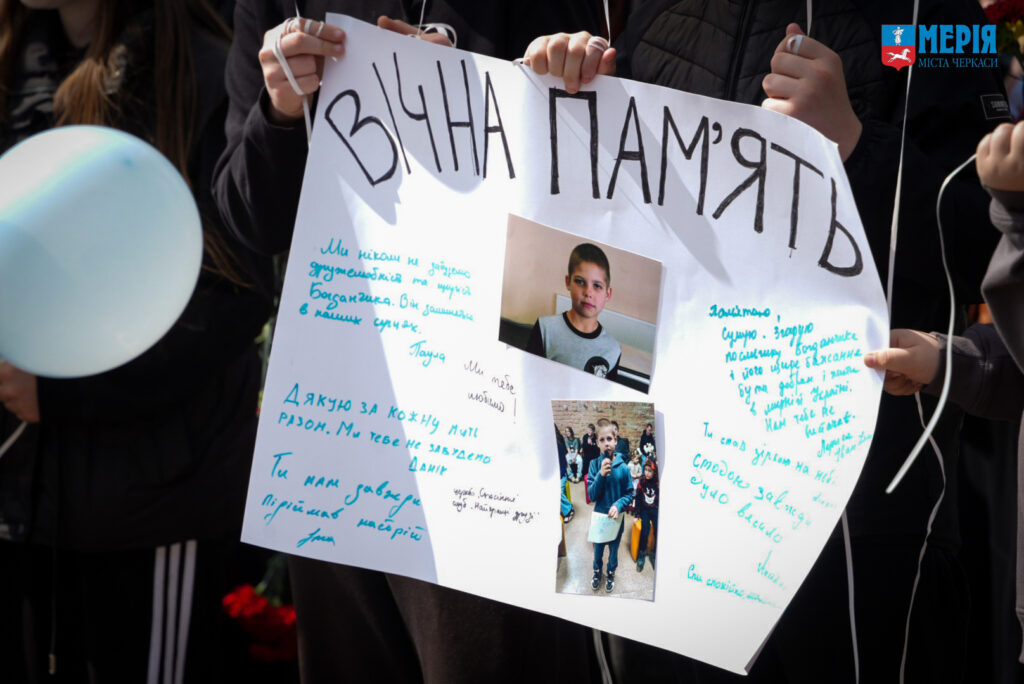 МЕРІЯ
МІСТА ЧЕРКАСИ
ВІЧНА ПАМ'ЯТЬ
Ми ніколи не забудемо
дружелюбність та щирість
Богданчика. Він залишиться
в наших серцях.
Паула
Ми тебе
любимо!
ДЯКУЮ ЗА КОЖНУ МИТЬ
РАЗОМ. МИ ТЕБЕ НЕ ЗАБУДЕМО
ДАНІК
Ти нам завжди
піріймав настрій
церква „Спасіння"
клуб „Найкращі друзі"
Памятаю,
сумую. Згадую
посмішку Богданчика
і його щире бажання
бути добрим і жити
в мирній Україні.
Нам тебе не
Ти став зіркою на небі.
с тобою завжди
було весело
Спи спокійно,